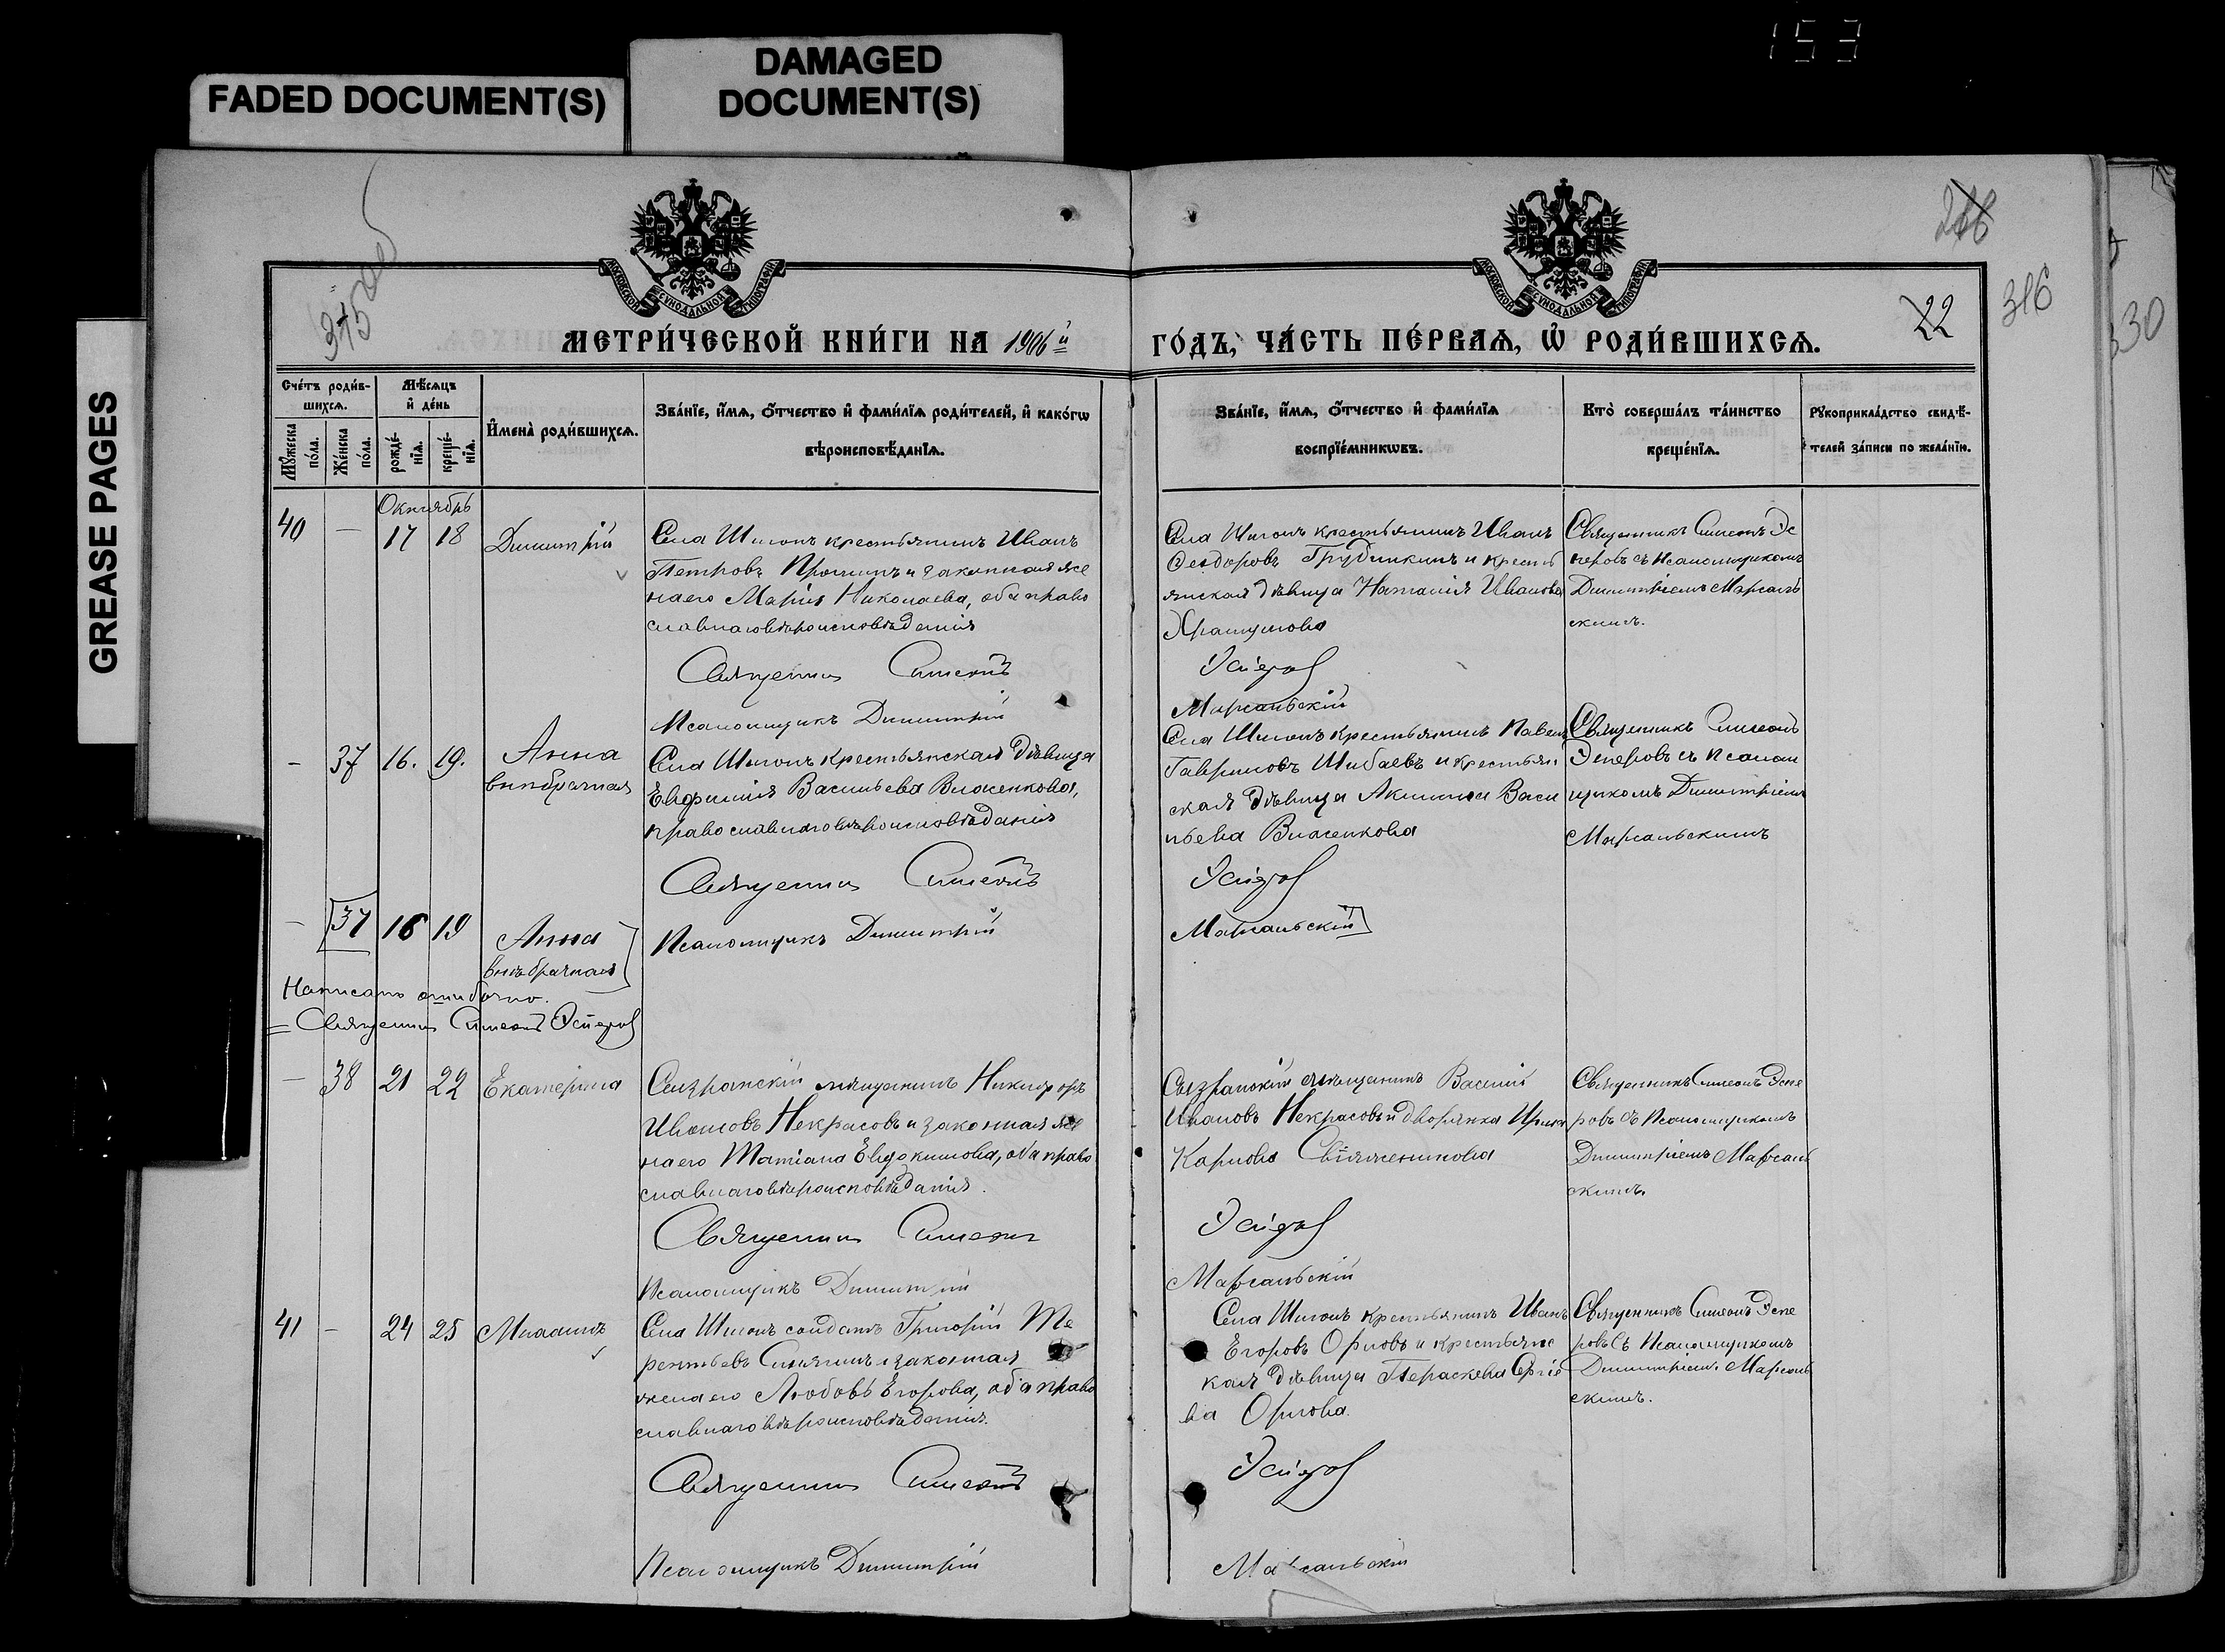 153
FADED DOCUMENT(S)
DAMAGED
DOCUMENT(S)
GREASE PAGES
315
316
22
330
МОСКОВСКОЙ СѴНОДАЛЬНОЙ ТИПОГРАФІИ
МОСКОВСКОЙ СѴНОДАЛЬНОЙ ТИПОГРАФІИ
МЕТРИ́ЧЕСКОЙ КНИ́ГИ НА 1906й
ГО́ДЪ, ЧА́СТЬ ПЕ́РВАѦ, Ѡ҆ РОДИ́ВШИХСѦ.
Сче́тъ роди́в-
шихсѧ.
Мꙋ́жеска
по́ла.
Же́нска
по́ла.
Мѣ́сѧцъ
и҆ де́нь
рожде́-
нїѧ.
креще́-
нїѧ.
И҆мена̀ роди́вшихсѧ.
Зва́нїе, и҆́мѧ, ѻ҆́тчество и҆ фами́лїѧ роди́телей, и҆ како́гѡ
вѣроисповѣ́данїѧ.
Зва́нїе, и҆́мѧ, ѻ҆́тчество и҆ фами́лїѧ
воспрїе́мникѡвъ.
Кто̀ соверша́лъ та́инство
креще́нїѧ.
Рꙋкоприкла́дство свидѣ́-
телей за́писи по жела́нїю.
Октябрь
40 — 17 18 Димитрій
Села Шигонъ крестьянинъ Иванъ
Петровъ Прошинъ и законная же
на его Марія Николаева, оба право
славнаго вѣроисповѣданія
Священник Симеонъ
Псаломщикъ Димитрій
Села Шигонъ крестьянинъ Иванъ
Ѳеодоровъ Грубинкинъ и кресть
янская дѣвица Наталія Иванова
Храмцова
Эсперов
Марсальскій
Священникъ Симеонъ Эс
перовъ съ псаломщикомъ
Димитріемъ Марсаль
скимъ.
— 37 16. 19. Анна
внѣбрачная
Села Шигонъ крестьянская дѣвица
Евфимія Васильева Влаженкова,
православнаго вѣроисповѣданія
Священник Симеонъ
Псаломщикъ Димитрій
Села Шигонъ крестьянинъ Павелъ
Гавриловъ Шибаевъ и крестьян
ская дѣвица Акилина Васи
льева Влаженкова
Эсперов
Марсальскій
Священникъ Симеонъ
Эсперовъ съ псалом
щикомъ Димитріемъ
Марсальскимъ
— 37 16 19 Анна
внѣбрачная
Написано ошибочно.
Священник Симеонъ Эсперов
— 38 21 22 Екатерина
Сызранскій мѣщанинъ Никифоръ
Ивановъ Некрасовъ и законная же
на его Татіана Евдокимова, оба право
славнаго вѣроисповѣданія.
Священник Симеон
Псаломщикъ Димитрій
Сызранскій мѣщанинъ Василій
Ивановъ Некрасовъ и дворянка Ирина
Карпова
Эсперов
Марсальскій
Священникъ Симеонъ Эспе
ровъ съ псаломщикомъ
Димитріемъ Марсаль
скимъ.
41 — 24 25
Села Шигонъ солдатъ Григорій Те
рентьевъ Синягинъ и законная
жена его Любовь Егорова, оба право
славнаго вѣроисповѣданія.
Священник Симеонъ
Псаломщикъ Димитрій
Села Шигонъ крестьянинъ Иванъ
Егоровъ Орловъ и крестьянс
кая дѣвица Параскева Сергіе
ва Орлова.
Эсперов
Марсальскій
Священникъ Симеонъ Эспе
ровъ съ псаломщикомъ
Димитріемъ Марсаль
скимъ.